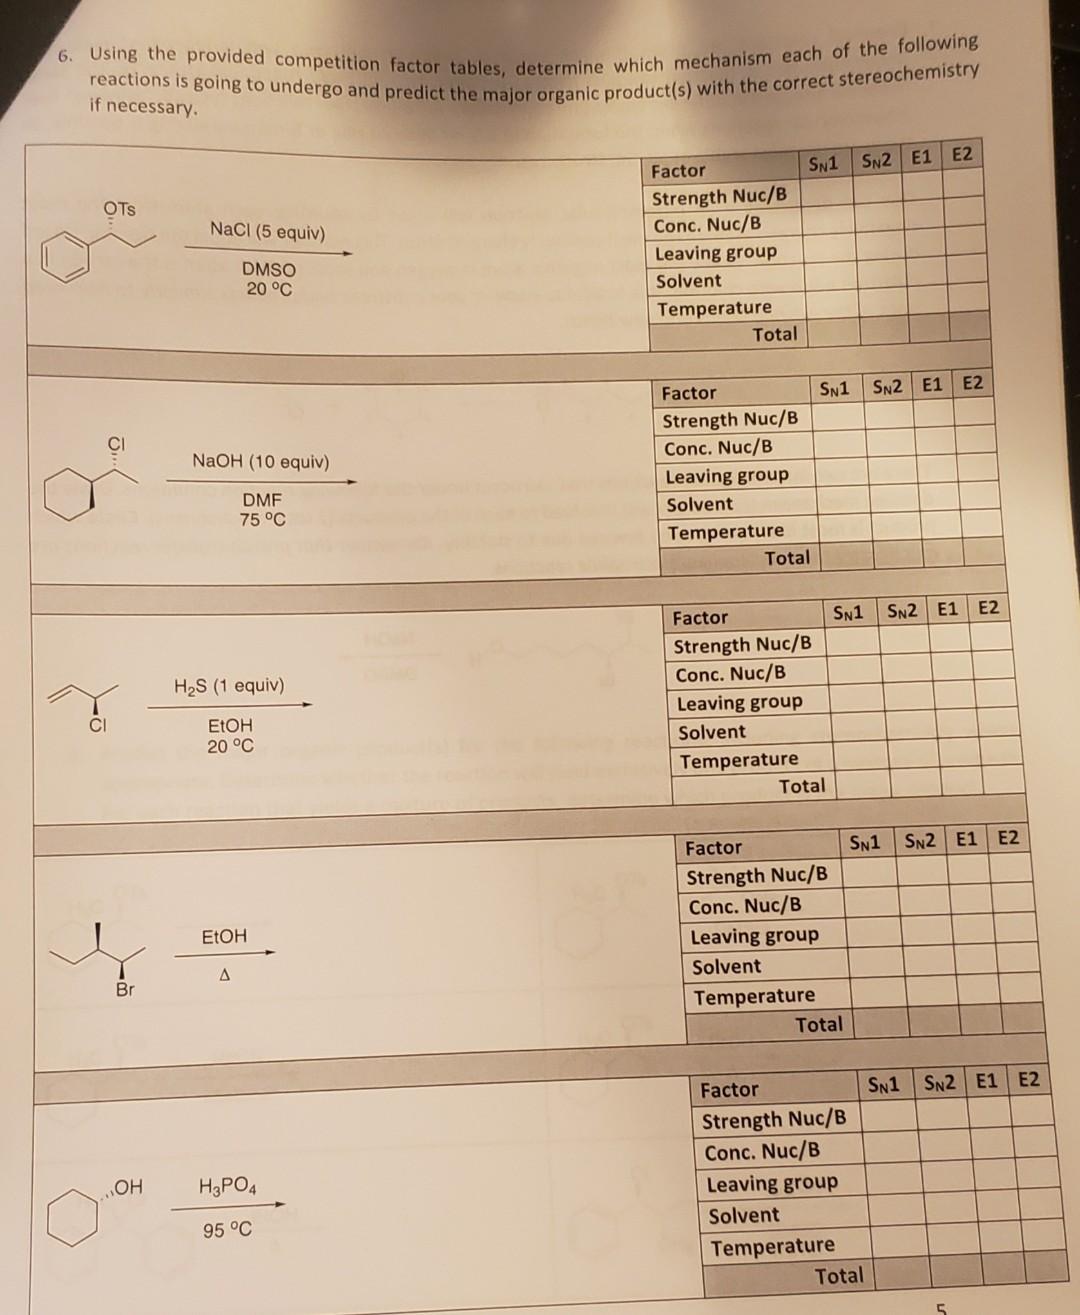 6. Using the provided competition factor tables, determine which mechanism each of the following
reactions is going to undergo and predict the major organic product(s) with the correct stereochemistry
if necessary.
OTs
NaCl (5 equiv)
DMSO
20 °C
Factor SN1 SN2 E1 E2
Strength Nuc/B
Conc. Nuc/B
Leaving group
Solvent
Temperature
Total
Cl
NaOH (10 equiv)
DMF
75 °C
Factor SN1 SN2 E1 E2
Strength Nuc/B
Conc. Nuc/B
Leaving group
Solvent
Temperature
Total
Cl
H2S (1 equiv)
EtOH
20 °C
Factor SN1 SN2 E1 E2
Strength Nuc/B
Conc. Nuc/B
Leaving group
Solvent
Temperature
Total
Br
EtOH
Δ
Factor SN1 SN2 E1 E2
Strength Nuc/B
Conc. Nuc/B
Leaving group
Solvent
Temperature
Total
OH
H3PO4
95 °C
Factor SN1 SN2 E1 E2
Strength Nuc/B
Conc. Nuc/B
Leaving group
Solvent
Temperature
Total
5